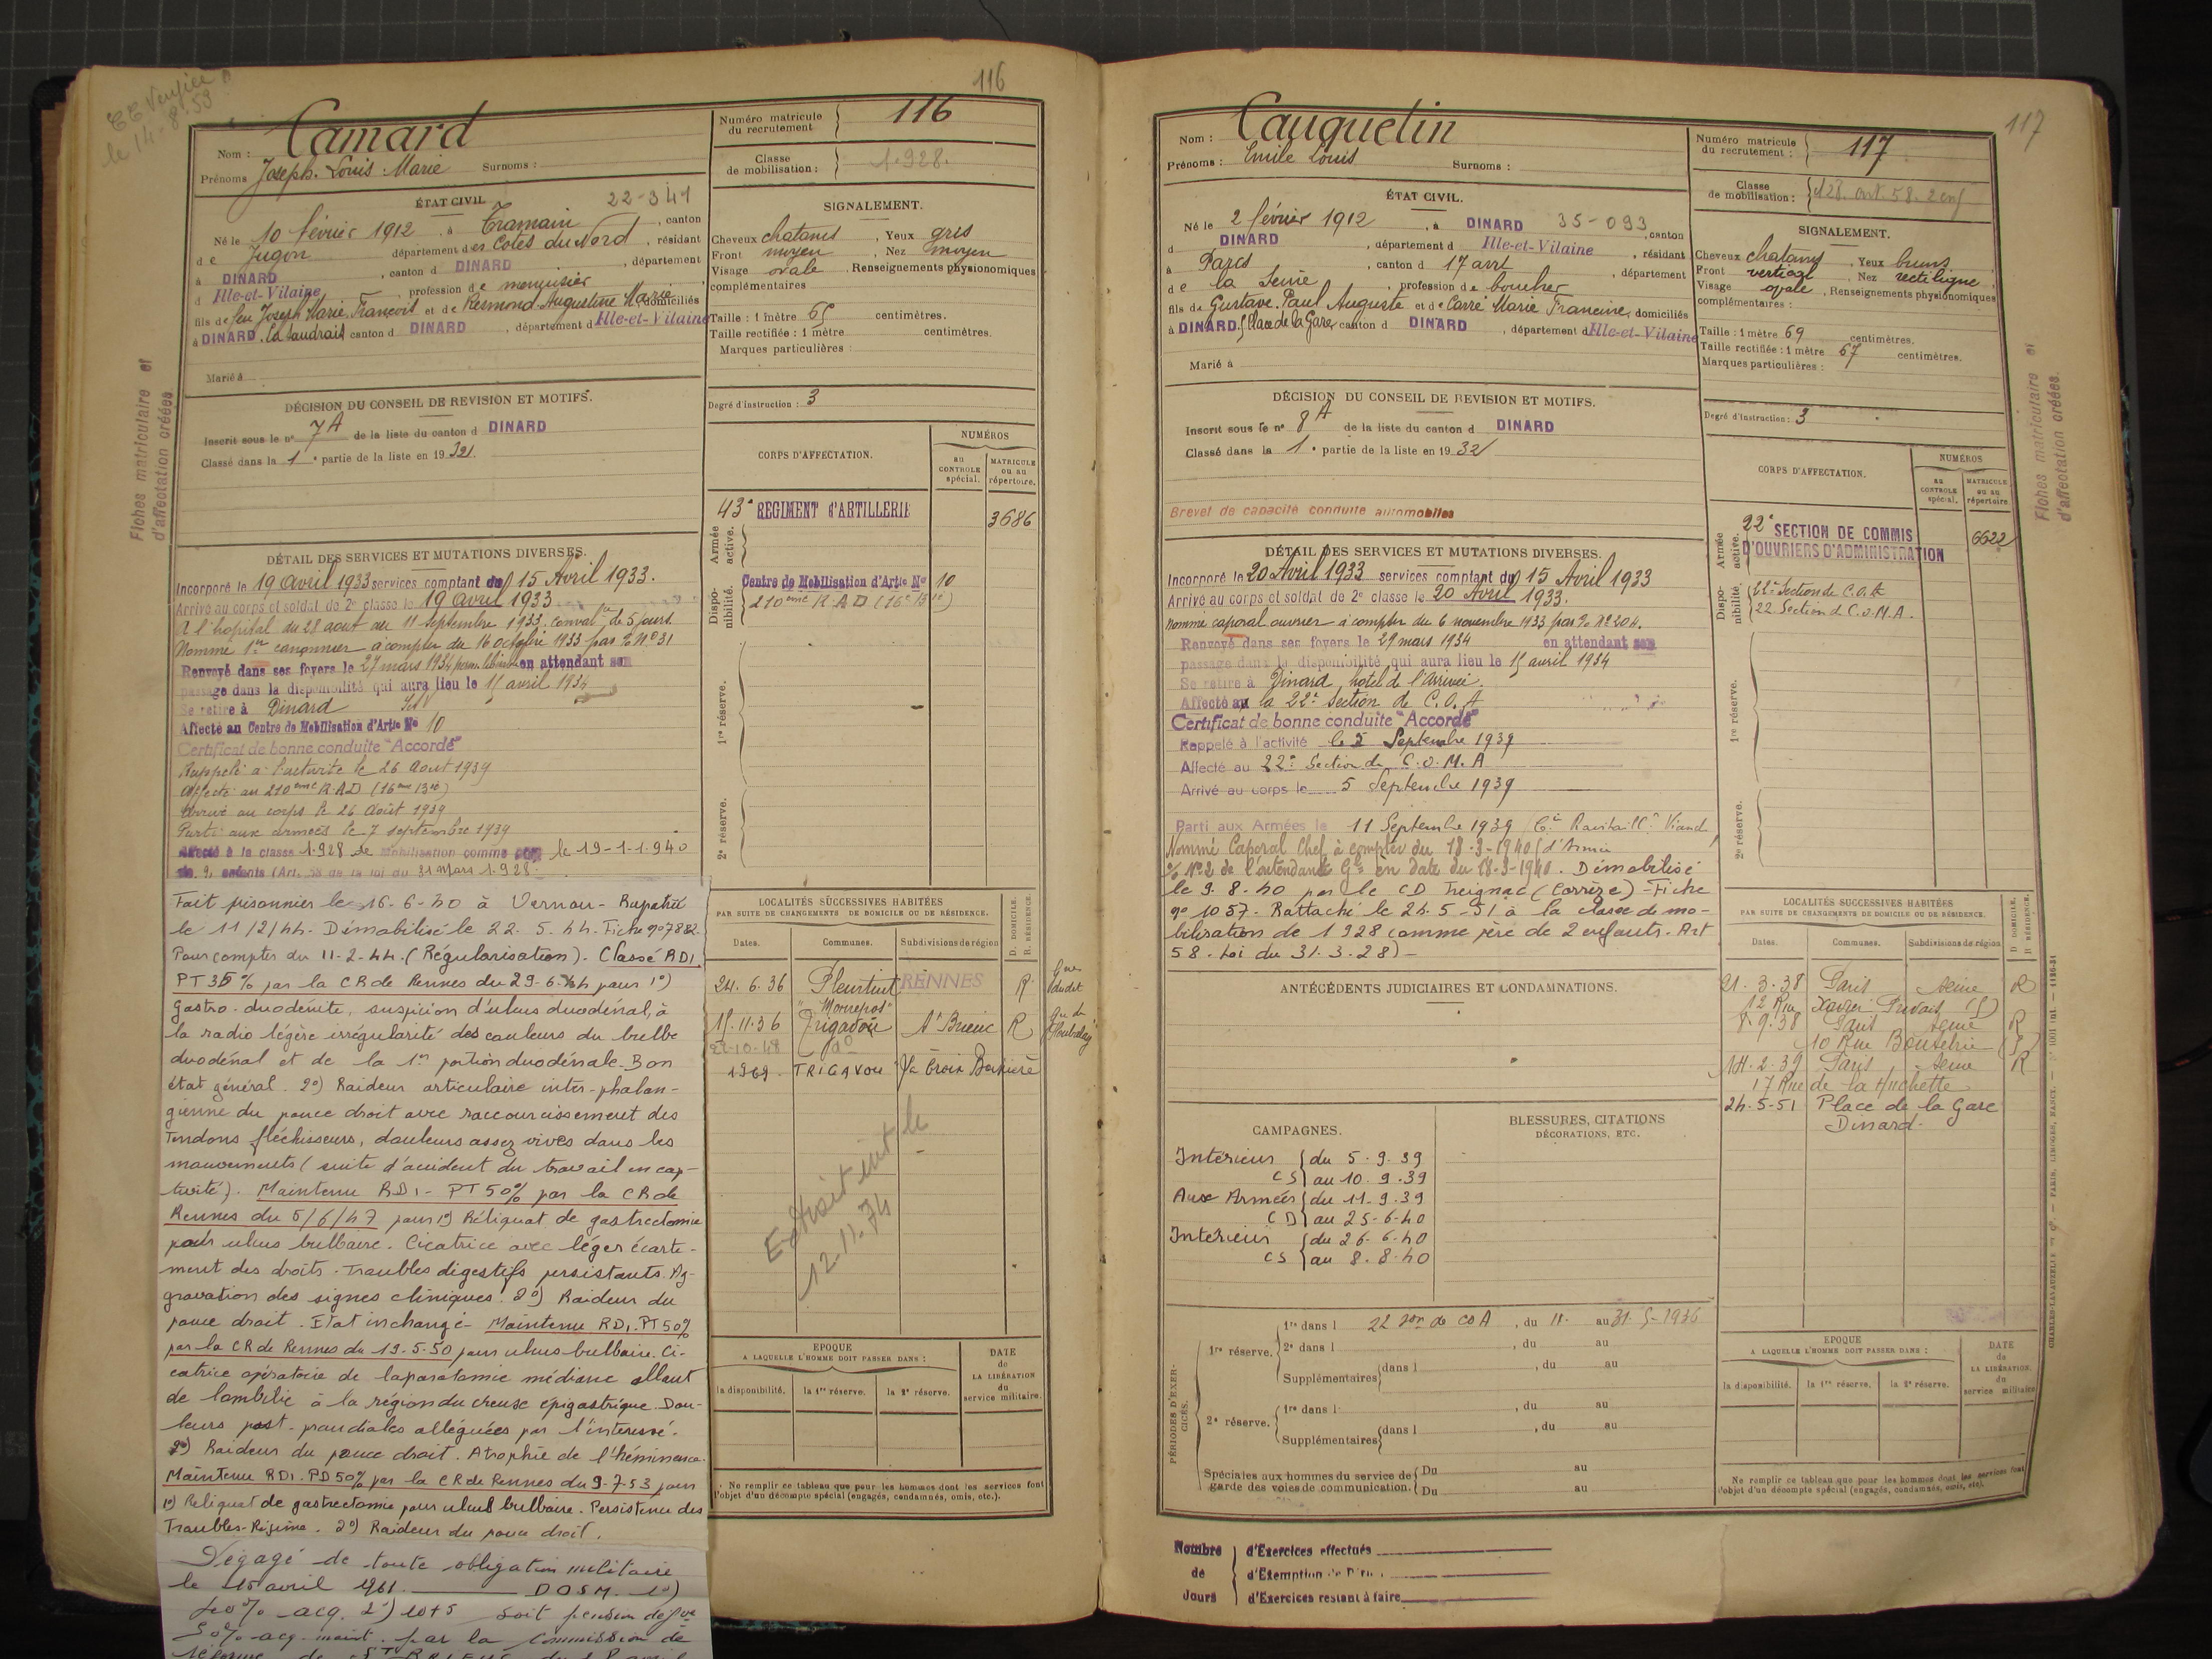 CC Vérifiée
le 14-8-53
116
Nom : Camard
Prénoms Joseph Louis Marie Surnoms :
Numéro matricule
du recrutement 116
Classe
de mobilisation : 1.928.
ÉTAT CIVIL 22-341
Né le 10 février 1912, à Tramain, canton
de Jugon département des Côtes du Nord, résidant
à DINARD, canton d DINARD, département
d Ille-et-Vilaine, profession de menuisier
fils de feu Joseph Marie François et de Resmond Augustine Marie domiciliés
à DINARD. La Saudrais canton d DINARD, département d Ille-et-Vilaine
Marié à
SIGNALEMENT.
Cheveux chatains, Yeux gris
Front moyen, Nez moyen
Visage ovale. Renseignements physionomiques
complémentaires
Taille : 1 mètre 65 centimètres.
Taille rectifiée : 1 mètre centimètres.
Marques particulières :
Degré d'instruction : 3
Fiches matriculaire et
d'affectation créées.
DÉCISION DU CONSEIL DE REVISION ET MOTIFS.
Inscrit sous le n° 7A de la liste du canton d DINARD
Classé dans la 1e partie de la liste en 1932/.
CORPS D'AFFECTATION.
NUMÉROS
au
CONTROLE
spécial.
MATRICULE
ou au
répertoire.
Armée
active.
43e REGIMENT d'ARTILLERIE 3686
Dispo-
nibilité.
Centre de Mobilisation d'Artie No 10
210ème R.A.D (16e Bie)
1re réserve.
2e réserve.
DÉTAIL DES SERVICES ET MUTATIONS DIVERSES.
Incorporé le 19 avril 1933 services comptant du 15 Avril 1933.
Arrivé au corps et soldat de 2e classe le 19 avril 1933
A l'hopital du 28 aout au 11 septembre 1933. Conval ce de 5 jours.
Nommé 1er canonnier à compter du 16 octobre 1933 par % No 31
Renvoyé dans ses foyers le 27 mars 1934 en attendant son
passage dans la disponibilité qui aura lieu le 15 avril 1934
Se retire à Dinard
Affecté au Centre de Mobilisation d'Artie No 10
Certificat de bonne conduite "Accordé"
Rappelé à l'activité le 26 Aout 1939
Affecté au 210ème R.A.D (16ème Bie)
Arrivé au corps le 26 Août 1939
Parti aux armées le 7 septembre 1939
Affecté à la classe 1.928 de Mobilisation comme père le 19-1-1.940
de 2 enfants (Art. 58 de la loi du 31 Mars 1.928.
Fait prisonnier le 16-6-40 à Vernou - Rapatrié
le 11/2/44. Démobilisé le 22.5.44. Fiche n° 7882.
Pour compter du 11-2-44. (Régularisation). Classé RD1
PT 35% par la CR de Rennes du 29-6-44 pour 1°)
Gastro-duodénite, suspicion d'ulcus duodénal, à
la radio légère irrégularité des couleurs du bulbe
duodénal et de la 1re portion duodénale. Bon
état général. 2°) Raideur articulaire inter-phalan-
gienne du pouce droit avec raccourcissement des
Tendons fléchisseurs, douleurs assez vives dans les
mouvements (suite d'accident du travail en cap-
tivité). Maintenu RD1 - PT 50% par la CR de
Rennes du 5/6/47 pour 1°) Réliquat de gastrectomie
pour ulcus bulbaire. Cicatrice avec léger écarte-
ment des droits. Troubles digestifs persistants. Ag-
gravation des signes cliniques. 2°) Raideur du
pouce droit. Etat inchangé - Maintenu RD1. PT 50%
par la CR de Rennes du 19-5-50 pour ulcus bulbaire. Ci-
catrice opératoire de laparatomie médiane allant
de l'ombilic à la région du creuse épigastrique. Dou-
leurs post-prandiales alléguées par l'intéressé.
2°) Raideur du pouce droit. Atrophie de l'héminence.
Maintenu RD1. PD 50% par la CR de Rennes du 9-7-53 pour
1°) Reliquat de gastrectomie pour ulcus bulbaire. Persistence des
Troubles-Régime. 2°) Raideur du pouce droit.
Dégagé de toute obligation militaire
le 15 avril 1961. DOSM. 1°)
40% acq. 2°) 10+5 soit pension défve
50% acq. maint. par la Commission de
LOCALITÉS SUCCESSIVES HABITÉES
PAR SUITE DE CHANGEMENTS DE DOMICILE OU DE RÉSIDENCE.
D. DOMICILE.
R. RÉSIDENCE.
Dates. Communes. Subdivisions de région
24.6.36 Pleurtuit RENNES R
"Monrepos"
15.11.36 Trigavou St Brieuc R
22-10-48 do
1969. TRIGAVOU La Croix
Extrait int le
12.11.74
EPOQUE
A LAQUELLE L'HOMME DOIT PASSER DANS :
la disponibilité. la 1re réserve. la 2e réserve.
DATE
de
LA LIBÉRATION
du
service militaire.
Ne remplir ce tableau que pour les hommes dont les services font
l'objet d'un décompte spécial (engagés, condamnés, omis, etc.).
117
Nom : Cauquelin
Prénoms : Emile Louis Surnoms :
Numéro matricule
du recrutement : 117
Classe
de mobilisation : 128. art. 58. 2 enf
ÉTAT CIVIL.
Né le 2 février 1912, à DINARD 35-093, canton
d DINARD, département d Ille-et-Vilaine, résidant
à Paris, canton d 17 arrt, département
de la Seine, profession de boucher
fils de Gustave Paul Auguste et de Carré Marie Francine, domiciliés
à DINARD (Place de la Gare, canton d DINARD, département d Ille-et-Vilaine
Marié à
SIGNALEMENT.
Cheveux chatains. Yeux bruns
Front vertical. Nez rectiligne
Visage ovale. Renseignements physionomiques
complémentaires :
Taille : 1 mètre 69 centimètres.
Taille rectifiée : 1 mètre 67 centimètres.
Marques particulières :
Degré d'instruction : 3
Fiches matriculaire et
d'affectation créées.
DÉCISION DU CONSEIL DE REVISION ET MOTIFS.
Inscrit sous le n° 8A de la liste du canton d DINARD
Classé dans la 1e partie de la liste en 1932/
Brevet de capacité conduite automobiles
CORPS D'AFFECTATION.
NUMÉROS
au
CONTROLE
spécial.
MATRICULE
ou au
répertoire
Armée
active.
22e SECTION DE COMMIS
D'OUVRIERS D'ADMINISTRATION 6622
Dispo-
nibilité.
22e Section de C.O.A
22 Section d C.O.M.A.
1re réserve.
2e réserve.
DÉTAIL DES SERVICES ET MUTATIONS DIVERSES.
Incorporé le 20 Avril 1933 services comptant du 15 Avril 1933
Arrivé au corps et soldat de 2e classe le 20 Avril 1933.
Nommé caporal ouvrier à compter du 6 novembre 1933 par % No 204.
Renvoyé dans ses foyers le 29 mars 1934 en attendant son
passage dans la disponibilité qui aura lieu le 15 avril 1934
Se retire à Dinard, hotel de l'Arrivée.
Affecté au la 22e Section de C.O.A
Certificat de bonne conduite "Accordé"
Rappelé à l'activité le 5 Septembre 1939
Affecté au 22e Section de C.O.M.A
Arrivé au corps le 5 Septembre 1939
Parti aux Armées le 11 Septembre 1939 (Cie Ravitaillt Viande
Nommé Caporal Chef à compter du 18-3-1940 (d'Armée
% No 2 de l'intendant Gal en date du 18-3-1940. Démobilisé
le 9.8.40 par le CD Treignac (Corrèze) - Fiche
n° 1057 - Rattaché le 24.5-51 à la classe de mo-
bilisation de 1928 comme père de 2 enfants. Art
58. loi du 31.3.28) -
ANTÉCÉDENTS JUDICIAIRES ET CONDAMNATIONS.
CAMPAGNES.
Intérieur du 5-9-39
CS au 10.9.39
Aux Armées du 11.9.39
CD au 25-6-40
Intérieur du 26.6.40
CS au 8.8.40
BLESSURES, CITATIONS
DÉCORATIONS, ETC.
LOCALITÉS SUCCESSIVES HABITÉES
PAR SUITE DE CHANGEMENTS DE DOMICILE OU DE RÉSIDENCE.
D DOMICILE.
R RÉSIDENCE.
Dates. Communes. Subdivisions de région
21.3.38 Paris Seine R
12 Rue Xavier Privas (5)
8.9.38 Paris Seine R
10 Rue Boutebrie (5)
14.2.39 Paris Seine R
17 Rue de la Huchette
24.5-51 Place de la Gare
Dinard.
PÉRIODES D'EXER-
CICES.
1re réserve. 1re dans l 22 Son de COA, du 11. au 31.5-1936
2e dans l, du au
Supplémentaires dans l, du au
2e réserve. 1re dans l, du au
Supplémentaires dans l, du au
Spéciales aux hommes du service de Du au
garde des voies de communication. Du au
EPOQUE
A LAQUELLE L'HOMME DOIT PASSER DANS :
la disponibilité. la 1re réserve. la 2e réserve.
DATE
de
LA LIBÉRATION
du
service militaire
Ne remplir ce tableau que pour les hommes dont les services font
l'objet d'un décompte spécial (engagés, condamnés, omis, etc).
Nombre d'Exercices effectués
de d'Exemption
Jours d'Exercices restant à faire